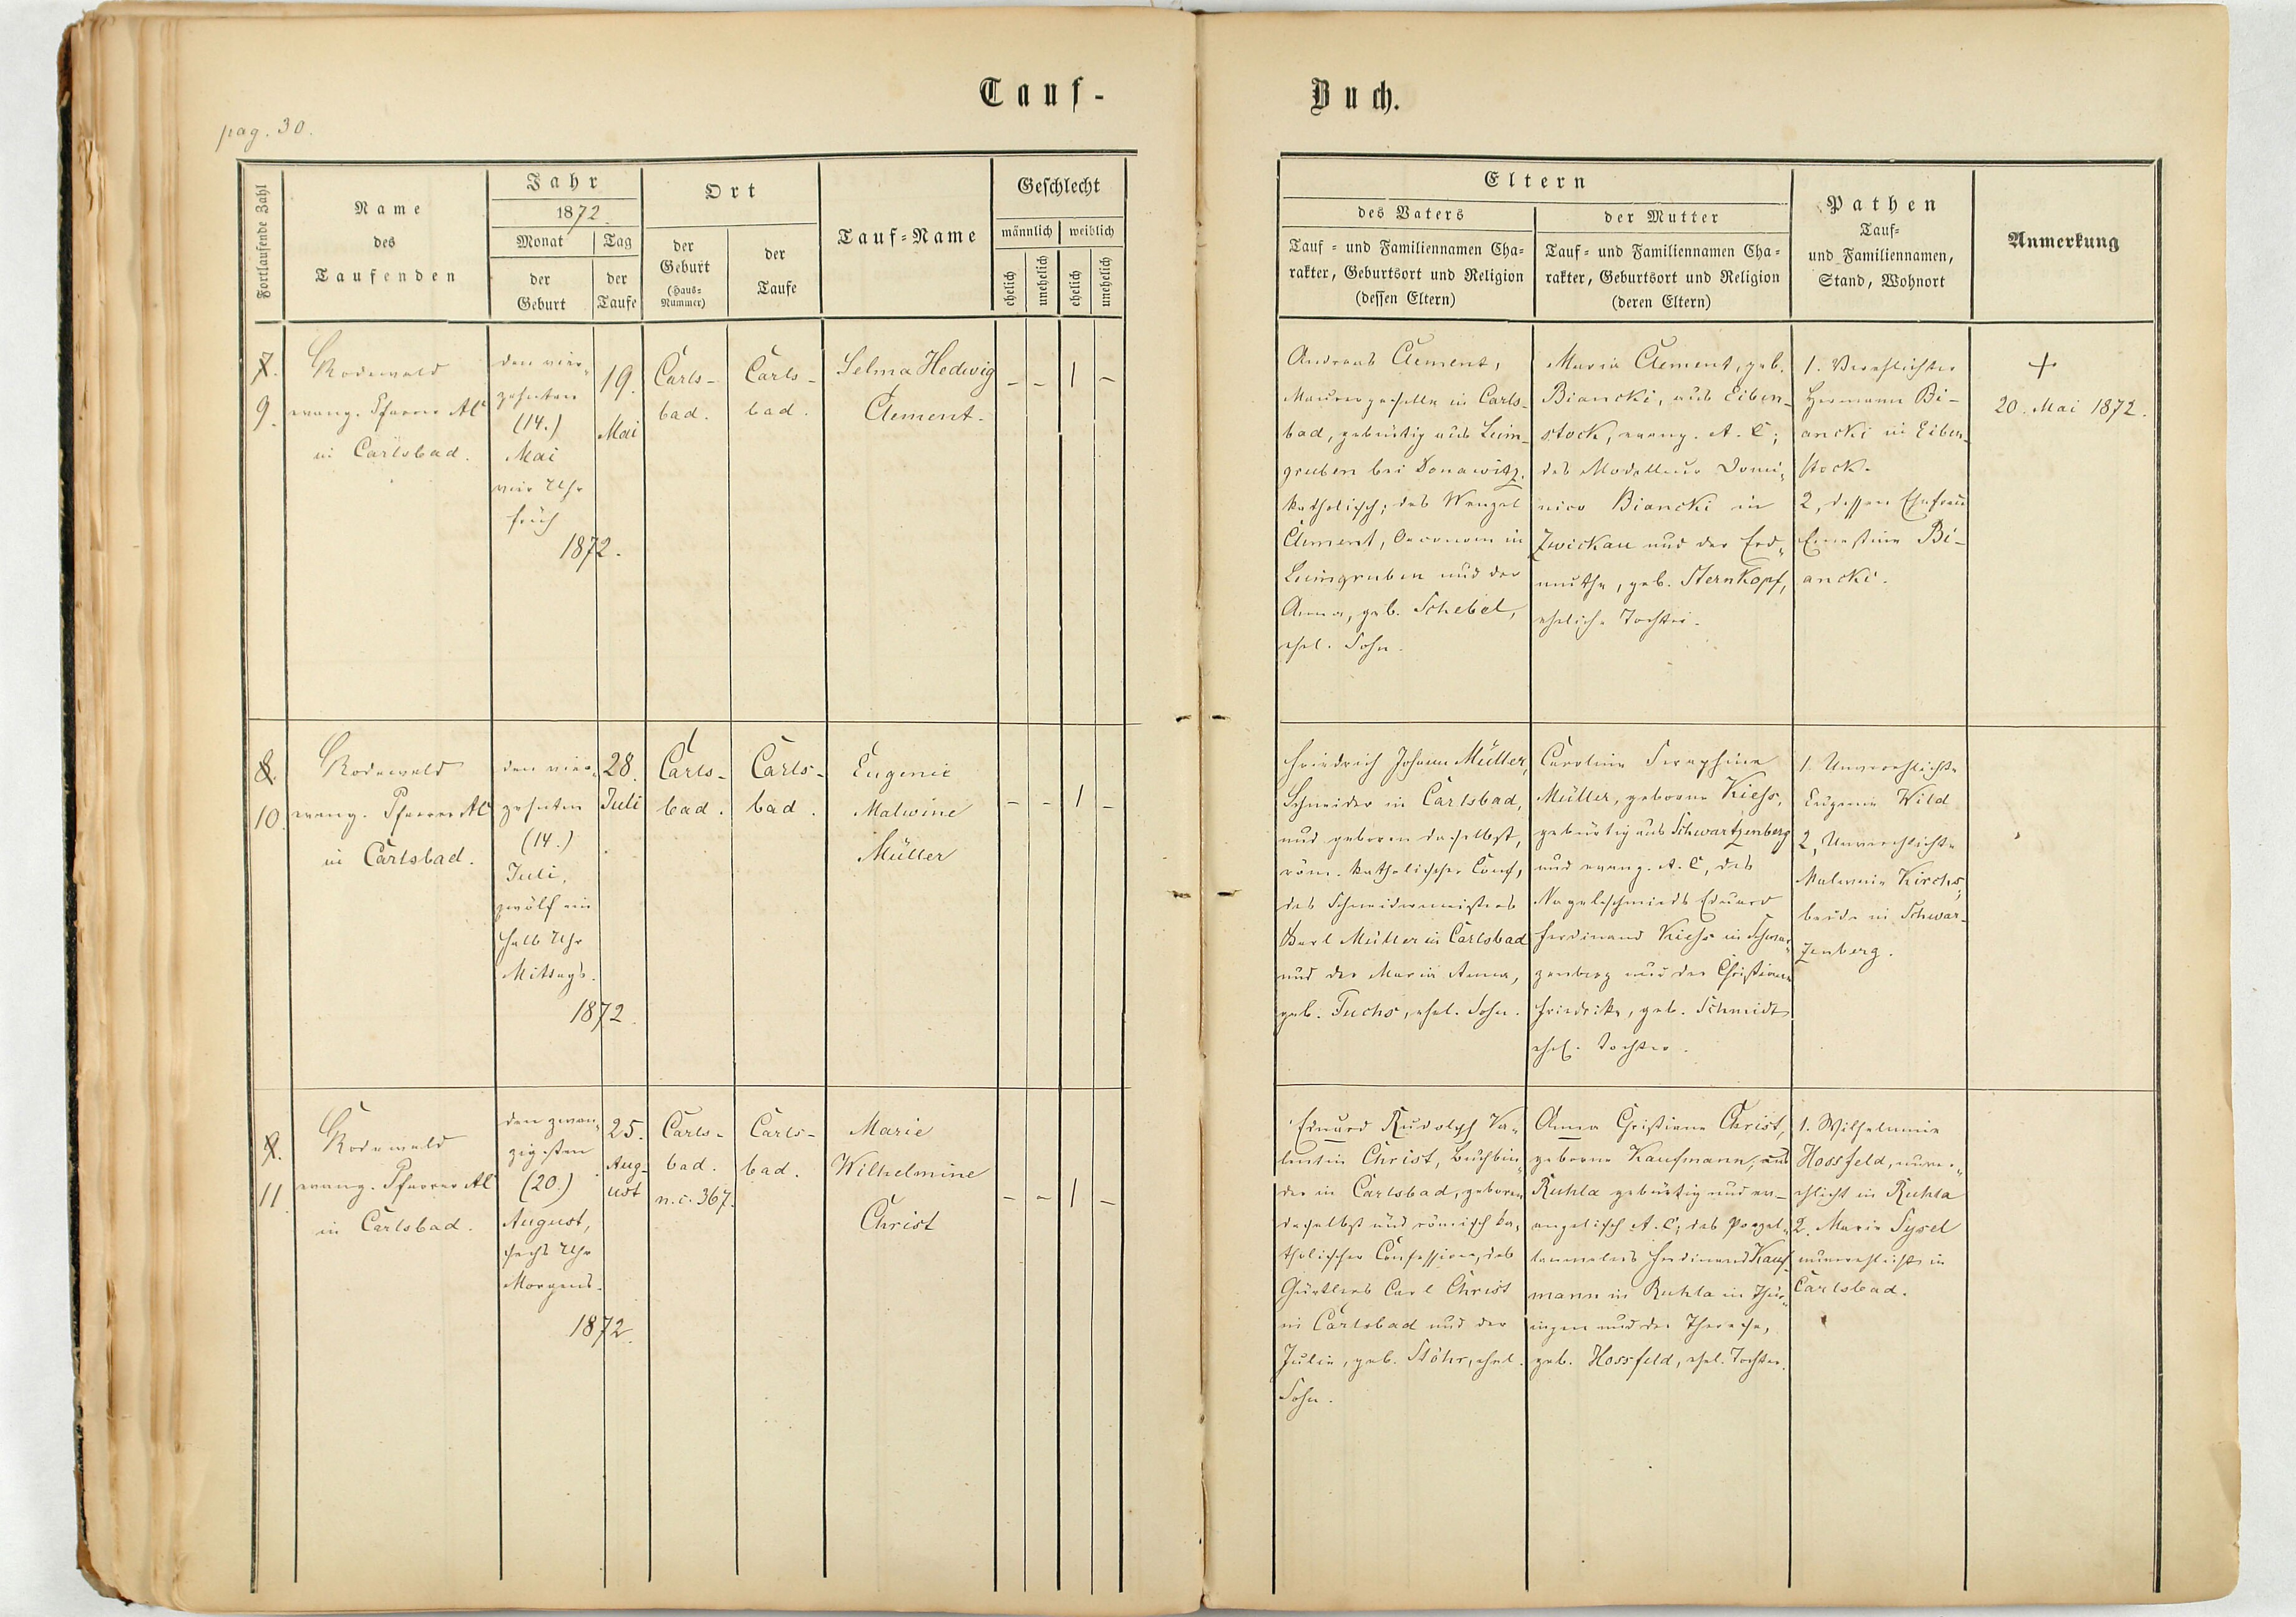 Tauf-
Buch.
pag. 30.
Fortlaufende Zahl
Name
des
Taufenden
Jahr
1872.
Monat
der
Geburt
Tag
der
Taufe
Ort
der
Geburt
(Haus-
Nummer)
der
Taufe
Tauf-Name
Geschlecht
männlich
weiblich
ehelich
unehelich
ehelich
unehelich
Eltern
des Vaters
Tauf- und Familiennamen Cha-
rakter, Geburtsort und Religion
(dessen Eltern)
der Mutter
Tauf- und Familiennamen Cha-
rakter, Geburtsort und Religion
(deren Eltern)
Pathen
Tauf-
und Familiennamen,
Stand, Wohnort
Anmerkung
7.
9.
Rodewald
evang. Pfarrer AC
in Carlsbad.
den vier-
zehnten
(14.)
Mai
vier Uhr
früh
1872.
19.
Mai
Carls-
bad.
Carls-
bad.
Selma Hedwig
Clement.
– – 1 –
Andreas Clement,
Maurergeselle in Carls-
bad, gebürtig aus Leim-
gruben bei Donawitz.
katholisch; des Wenzel
Clement, Oeconom in
Leimgruben und der
Anna, geb. Schebel,
ehel. Sohn.
Maria Clement, geb.
Biancki, aus Eiben-
stock, evang. A. C;
des Modelleur Domi-
nico Biancki in
Zwickau und der Erd-
muthe, geb. Sternkopf,
eheliche Tochter.
1. Verehlichter
Hermann Bi-
ancki in Eiben-
stock.
2, dessen Ehefrau
Ernestine Bi-
ancki.
+
20. Mai 1872.
8.
10.
Rodewald
evang. Pfarrer AC
in Carlsbad.
den vier-
zehnten
(14.)
Juli,
zwölf ein
halb Uhr
Mittags.
1872.
28.
Juli
Carls-
bad.
Carls-
bad.
Eugenie
Malwine
Müller
– – 1 –
Friedrich Johann Müller,
Schneider in Carlsbad,
und geboren daselbst,
röm. katholischer Conf,
des Schneidermeisters
Karl Müller in Carlsbad
und der Maria Anna,
geb. Fuchs, ehel. Sohn.
Caroline Seraphine
Müller, geborne Kiehs,
gebürtig aus Schwartzenberg
und evang. A. C, des
Nagelschmieds Eduard
Ferdinand Kiehs in Schwar-
zenberg und der Christiane
Friedrike, geb. Schmidt
ehel. Tochter.
1. Unverehlichte
Eugenie Wild
2, Unverehlichte
Malwine Kirchs,
beide in Schwar-
zenberg.
9.
11.
Rodewald
evang. Pfarrer AC
in Carlsbad.
den zwan-
zigsten
(20.)
August,
sechs Uhr
Morgens.
1872.
25.
Aug-
ust
Carls-
bad.
n. c. 367.
Carls-
bad.
Marie
Wilhelmine
Christ
– – 1 –
Eduard Rudolph Va-
lentin Christ, Buchbin-
der in Carlsbad, geboren
daselbst und römisch ka-
tholischer Confession, des
Gürtlers Carl Christ
in Carlsbad und der
Julie, geb. Stöhr, ehel.
Sohn.
Anna Christiane Christ,
geborne Kaufmann, aus
Ruhla gebürtig und ev-
angelisch A. C, des Porzel-
lanmalers Ferdinand Kauf-
mann in Ruhla in Thür-
ingen und der Therese,
geb. Hossfeld, ehel. Tochter.
1. Wilhelmine
Hossfeld, unver-
ehlicht in Ruhla
2. Marie Sysel
unverehlicht in
Carlsbad.